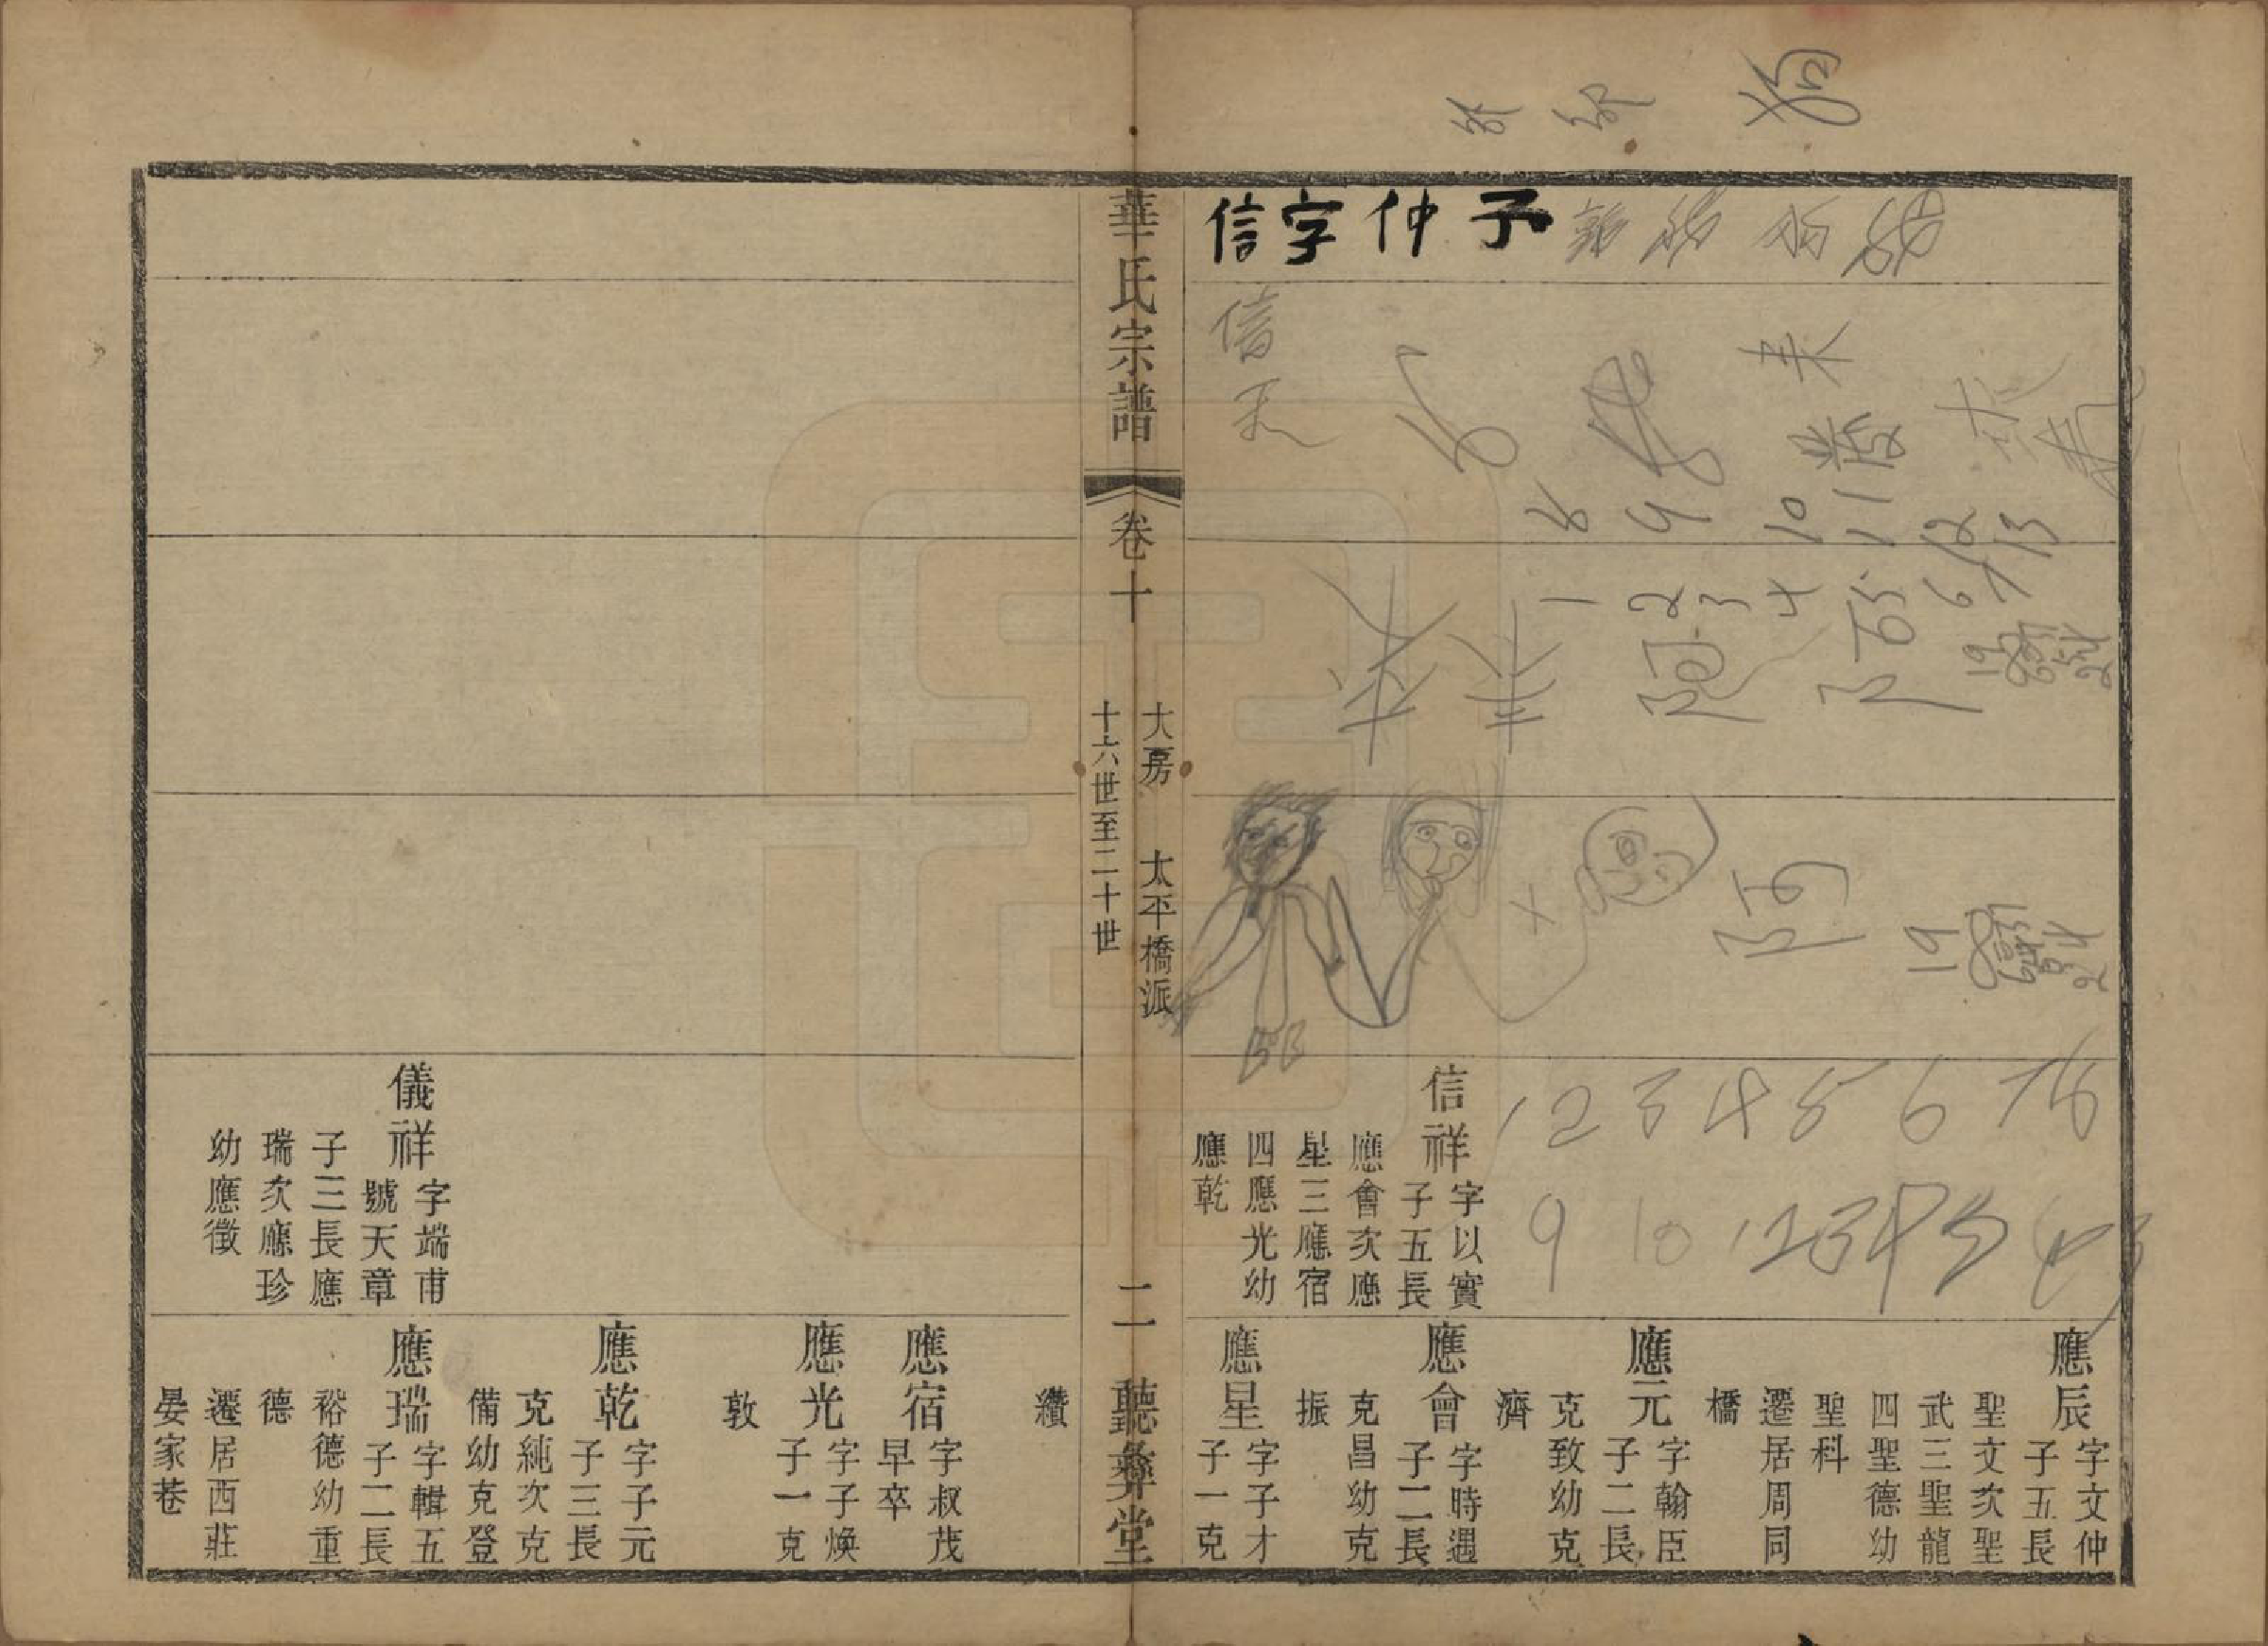 子仲字信
信天
8 9 10 11 12 13
1 2 3 4 5 6 7 8
阿
阿
19
1 2 3 4 5 6 7 8
9 10
應辰
字文仲
子五長
聖文次聖
武三聖龍
四聖德幼
聖科
遷居周同
橋
應元
字翰臣
子二長
克致幼克
濟
信祥
字以實
子五長
應會次應
星三應宿
四應光幼
應乾
應會
字時遇
子二長
克昌幼克
振
應星
字子才
子一克
華氏宗譜
卷十
大房 太平橋派
十六世至二十世
二
聽彝堂
纘
應宿
字叔茂
早卒
應光
字子煥
子一克
敦
應乾
字子元
子三長
克純次克
備幼克登
儀祥
字端甫
號天章
子三長應
瑞次應珍
幼應徵
應瑞
字輯五
子二長
裕德幼重
德
遷居西莊
晏家巷